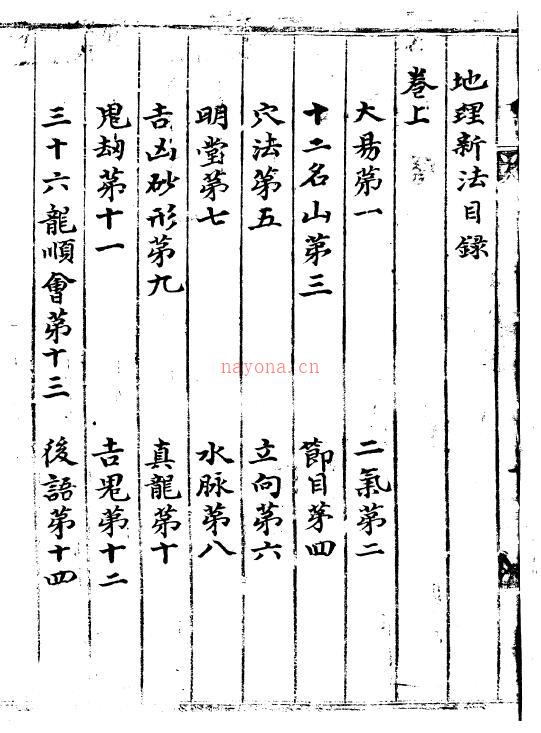 地理新法目錄
卷上
大易第一
二氣第二
十二名山第三
節目第四
穴法第五
立向第六
明堂第七
水脉第八
吉凶砂形第九
真龍第十
鬼劫第十一
吉鬼第十二
三十六龍順會第十三
後語第十四
nayona.cn